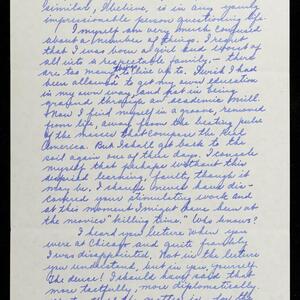 similar, I believe, is in any young
impressionable person questioning life.
I myself am very much confused
about a number of things. I regret
that I was born a girl and sort of
all into a respectable family, — there
are too many to live up to. I wish I had
been allowed to get my own education
in my own way, and not in being
ground through an academic mill.
Now I find myself in a groove, removed
from life, away from the beating pulse
of the masses that compose the Real
America. But I shall get back to the
soil again one of these days. I console
myself that perhaps without this
stupid learning, faulty though it
may be. I should never have dis-
covered your stimulating work and
at this moment might have been at
the movies "killing time." Who knows?
I heard you lecture when you
were at Chicago and quite frankly
I was disappointed. Not in the lecture
you understand, but in you, yourself.
The deuce! I should have said that
more tactfully, more diplomatically.